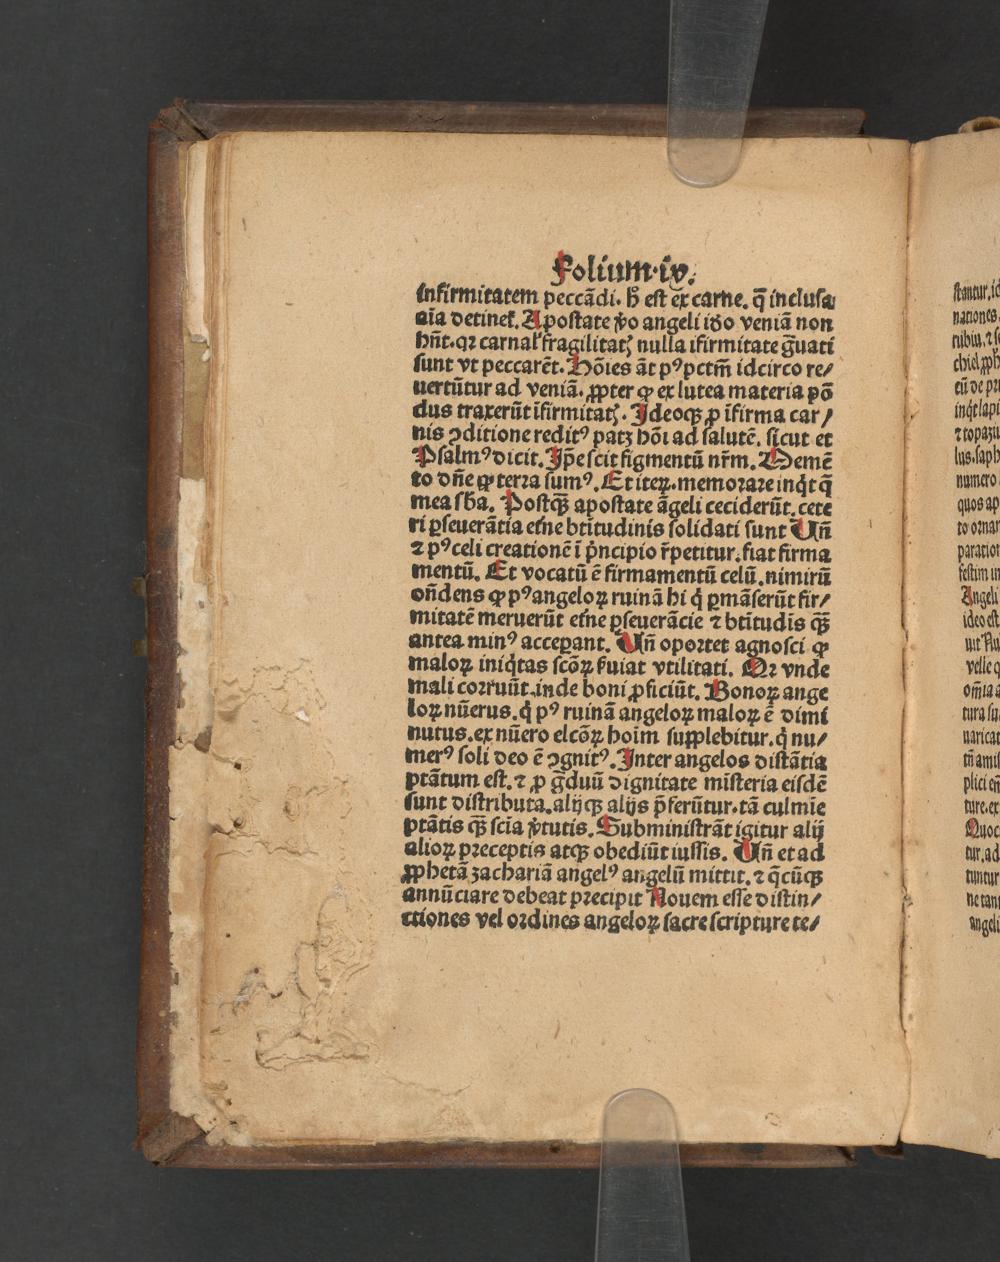 Folium.iv.
infirmitatem peccãdi. h̄ est ex carne. q̃ inclusa
aĩa detinet᷒. Apostate ỽo angeli iđo veniã non
hñt. qꝛ carnał fragilitatꝫ nulla ifirmitate g̃uati
sunt vt peccarẽt. Hõies ãt pꝰ pctm̃ idcirco re/
uertũtur ad veniã. ꝓpter ꝙ ex lutea materia põ
dus traxerũt ĩfirmitatꝫ. Ideoqꝫ ꝓ ĩfirma car/
nis ꝯditione reditꝰ patꝫ hõi ad salutẽ. sicut et
Psalmꝰ dicit. Ip̃e scit figmentũ nr̃m. Memẽ
to dñe ꝙ terra sumꝰ. Et iteꝝ. memorare inq̇t q̃
mea sb̃a. Postqꝫ̃ apostate ãgeli ceciderũt. cete
ri ꝑseuerãtia et̃ne btĩtudinis solidati sunt Uñ
⁊ pꝰ celi creationẽ ĩ pͥncipio r̃petitur. fiat firma
mentũ. Et vocatũ ẽ firmamentũ celũ. nimirũ
oñdens ꝙ pꝰ angeloꝝ ruinã hi q̇ ꝑmãserũt fir/
mitatẽ meruerũt et̃ne ꝑseuerãcie ⁊ btĩtudĩs qꝫ̃
antea minꝰ acceꝑant. Uñ oportet agnosci ꝙ
maloꝝ iniq̇tas scõꝝ ẜuiat vtilitati. Qꝛ vnde
mali corruũt. inde boni ꝓficiũt. Bonoꝝ ange
loꝝ nũerus. q̇ pꝰ ruinã angeloꝝ maloꝝ ẽ dimi
nutus. ex nũero elcõꝝ hoĩm supplebitur. q̇ nu/
merꝰ soli deo ẽ ꝯgnitꝰ. Inter angelos distãtia
ptãtum est. ⁊ ꝓ g̃duũ dignitate mĩsteria eisdẽ
sunt distributa. alijqꝫ alijs p̃ferũtur. tã culmĩe
ptãtis qꝫ̃ scĩa ỽtutis. Subministrãt igitur alij
alioꝝ preceptis atqꝫ obediũt iussis. Uñ et ad
ꝓphetã zachariã angelꝰ angelũ mittit. ⁊ q̃cũqꝫ
annũciare debeat precipit Nouem esse distin/
ctiones vel ordines angeloꝝ sacre scripture te/